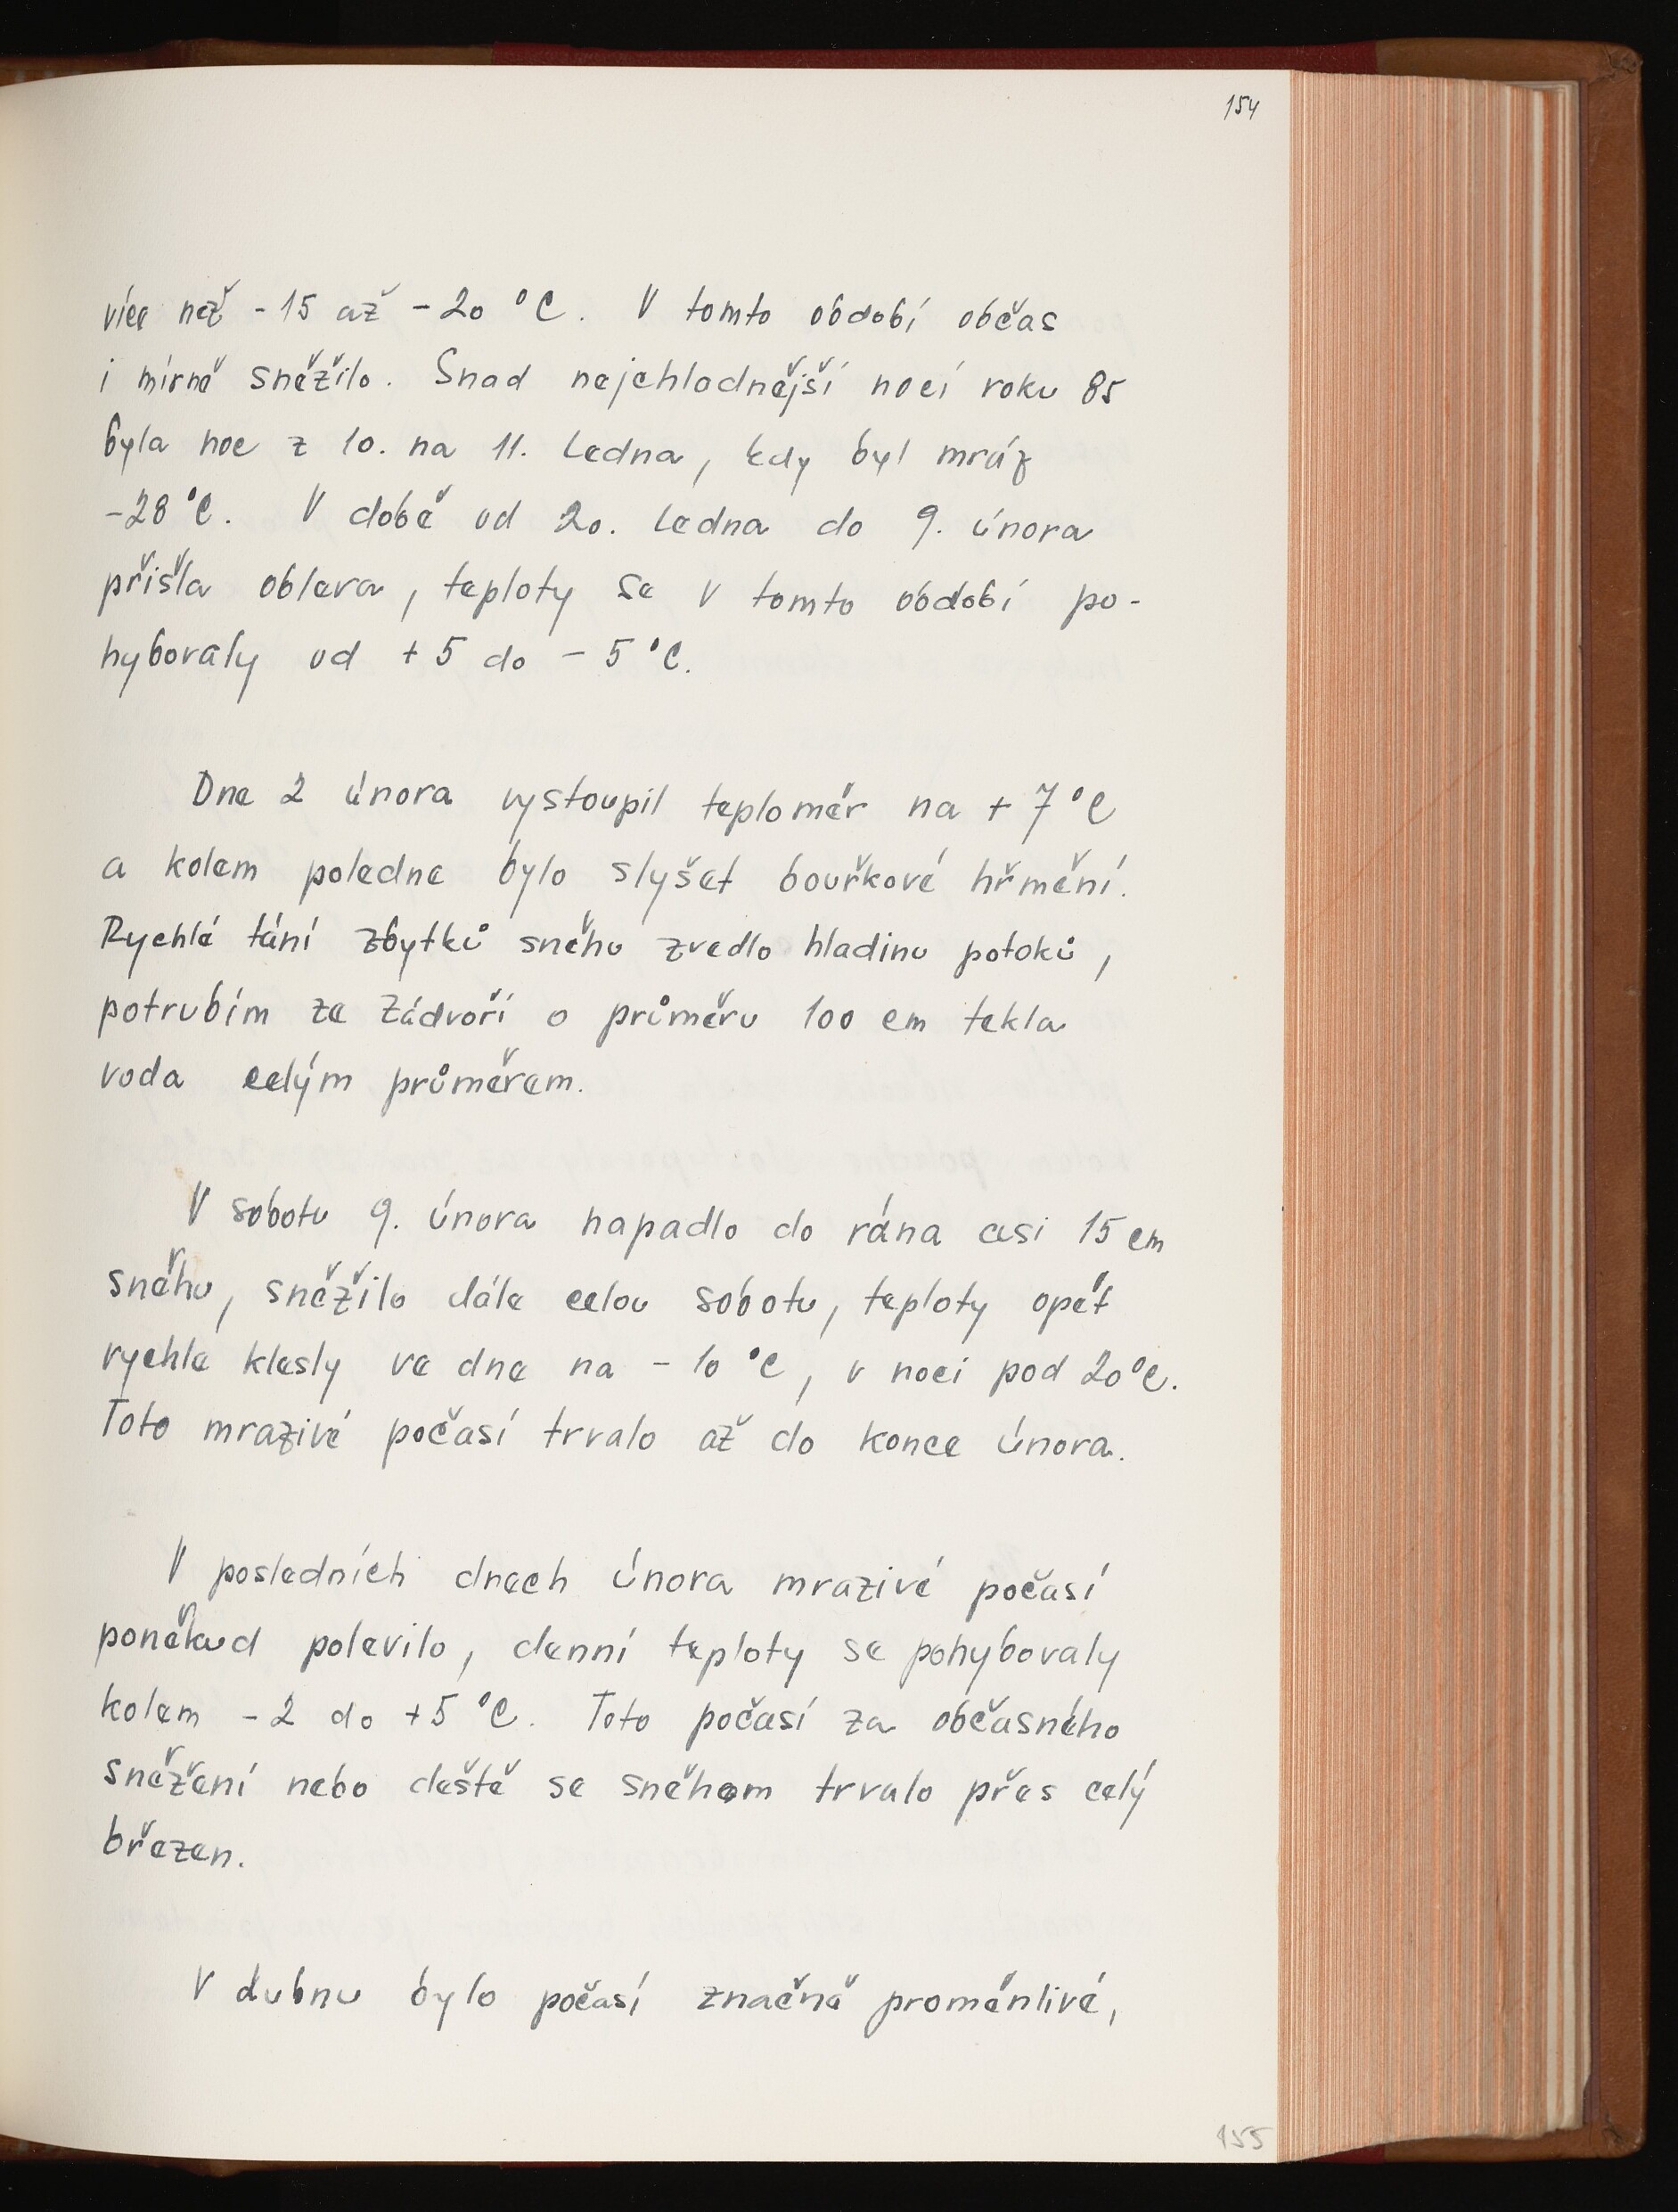 154
více než -15 až -20 °C. V tomto období občas
i mírně sněžilo. Snad nejchladnější nocí roku 85
byla noc z 10. na 11. ledna, kdy byl mráz
-28 °C. V době od 20. ledna do 9. února
přišla obleva, teploty se v tomto období po-
hybovaly od +5 do -5 °C.
Dne 2 února vystoupil teploměr na +7 °C
a kolem poledne bylo slyšet bouřkové hřmění.
Rychlé tání zbytků sněhu zvedlo hladinu potoků,
potrubím ze Zádvoří o průměru 100 cm tekla
voda celým průměrem.
V sobotu 9. února napadlo do rána asi 15 cm
sněhu, sněžilo dále celou sobotu, teploty opět
rychle klesly ve dne na -10 °C, v noci pod 20 °C.
Toto mrazivé počasí trvalo až do konce února.
V posledních dnech února mrazivé počasí
poněkud polevilo, denní teploty se pohybovaly
kolem -2 do +5 °C. Toto počasí za občasného
sněžení nebo deště se sněhem trvalo přes celý
březen.
V dubnu bylo počasí značně proměnlivé,
155